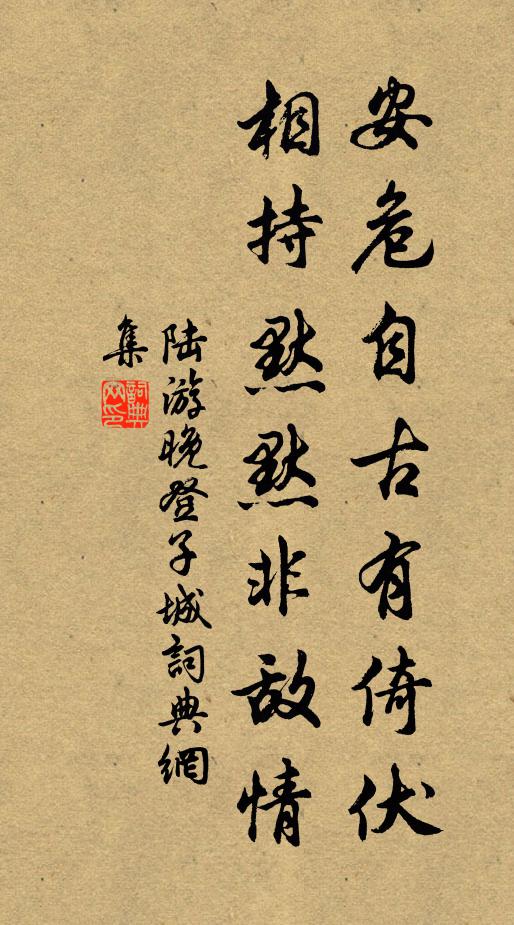 安危自古有倚伏
相持默默非敌情
陆游晚登子城詞典網
集
詞典
网印